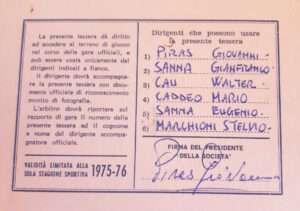 La presente tessera dà diritto
ad accedere al terreno di giuoco
nel corso delle gare ufficiali, e
può essere usata unicamente dai
dirigenti indicati a fianco.
Il dirigente dovrà accompagna-
re la presente tessera con un
documento ufficiale di riconoscimento
munito di fotografia.
L'arbitro dovrà riportare sul
rapporto di gara il numero della
presente tessera ed il cognome
e nome del dirigente accompa-
gnatore ufficiale.
VALIDITÀ LIMITATA ALLA
SOLA STAGIONE SPORTIVA 1975-76
Dirigenti che possono usare
la presente tessera
1) PIRAS GIOVANNI
2) SANNA GIANFRANCO
3) CAU WALTER
4) CADDEO MARIO
5) SANNA EUGENIO
6) MARCHIONI STELVIO
FIRMA DEL PRESIDENTE
DELLA SOCIETÀ
Piras Giovanni